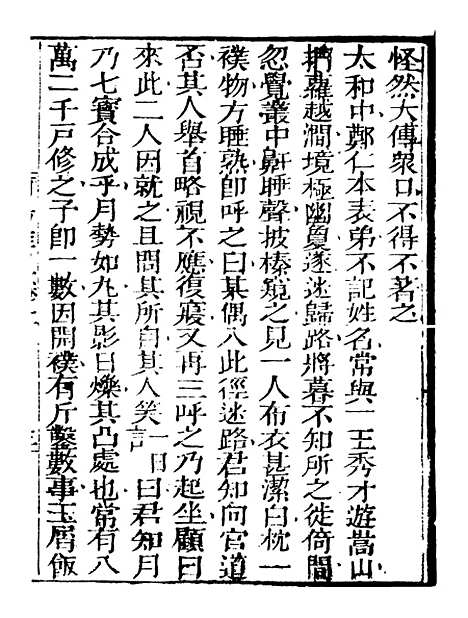 怪然大傳衆口不得不著之
太和中鄭仁本表弟不記姓名常與一王秀才遊嵩山
捫蘿越澗境極幽夐遂迷歸路將暮不知所之徙倚間
忽覺叢中鼾睡聲披榛窺之見一人布衣甚潔白枕一
襆物方睡熟卽呼之曰某偶入此徑迷路君知向官道
否其人舉首略視不應復寢又再三呼之乃起坐顧曰
來此二人因就之且問其所自其人笑言一曰曰君知月
乃七寶合成乎月勢如丸其影日爍其凸處也常有八
萬二千戸修之予卽一數因開襆有斤鑿數事玉屑飯